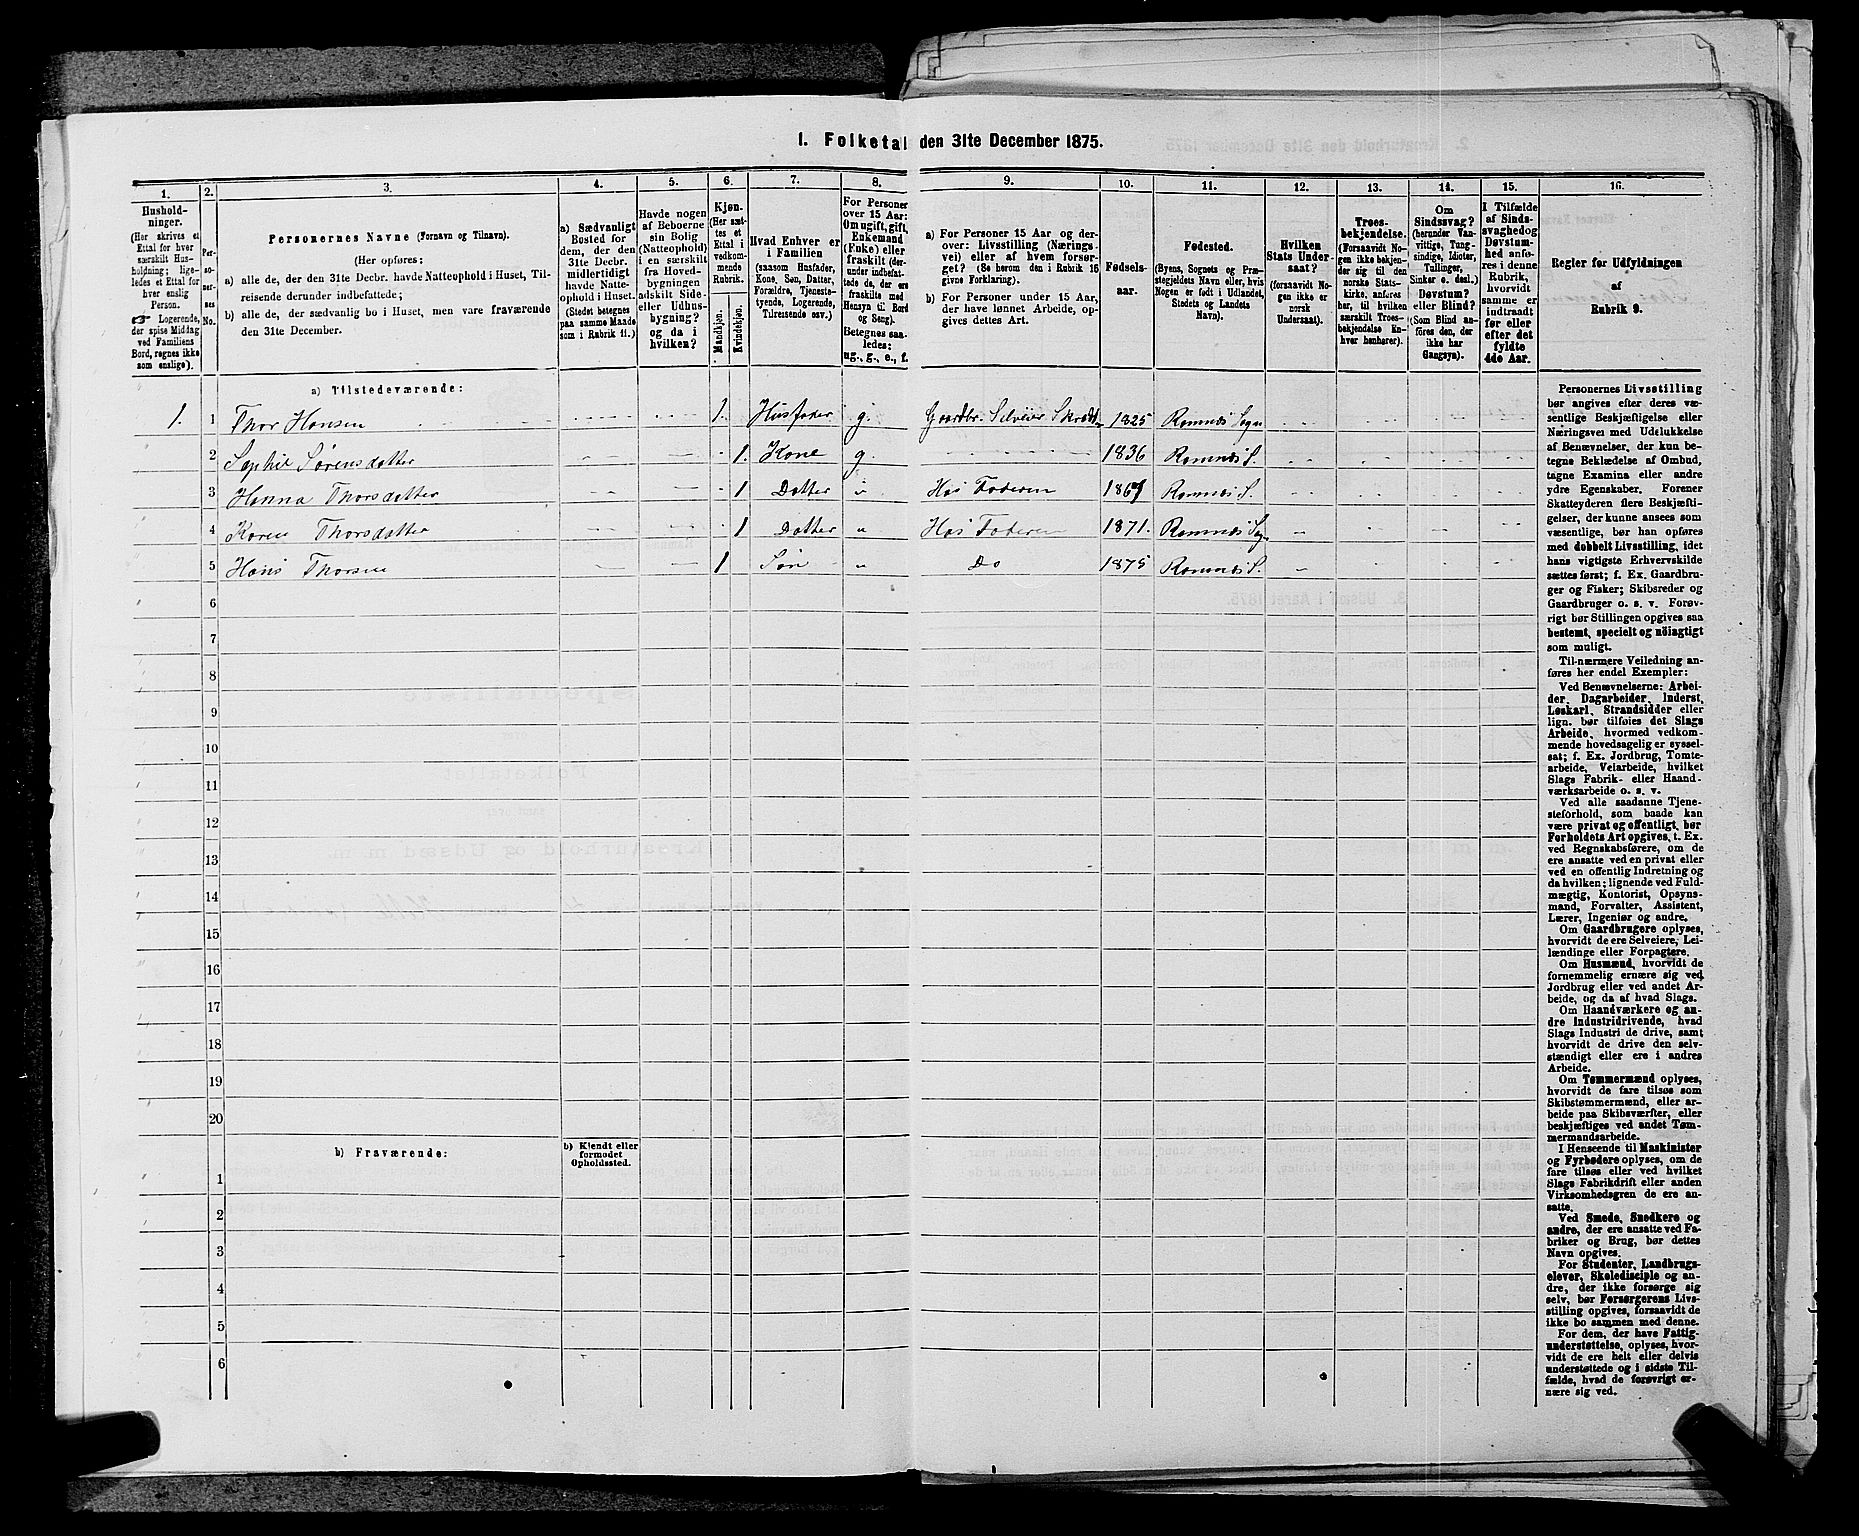 1. Folketal den 31te December 1875.
1.
2.
3.
4.
5.
6.
7.
8.
9.
10.
11.
12.
13.
14.
15.
16.
Hushold-
ninger.
(Her skrives et
Ettal for hver
særskilt Hus-
holdning; lige-
ledes et Ettal for
hver enslig
Person.
☞ Logerende,
der spise Middag
ved Familiens
Bord, regnes ikke
som enslige).
Per-
so-
ner-
nes
No.
Personernes Navne (Fornavn og Tilnavn).
(Her opføres:
a) alle de, der den 31te Decbr. havde Natteophold i Huset, Til-
reisende derunder indbefattede;
b) alle de, der sædvanlig bo i Huset, men vare fraværende
den 31te December.
a) Sædvanligt
Bosted for
dem, der den
31te Decbr.
midlertidigt
havde Natte-
ophold i Huset.
(Stedet betegnes
paa samme Maade
som i Rubrik 11.)
Havde nogen
af Beboerne
sin Bolig
(Natteophold)
i en særskilt
fra Hoved-
bygningen
adskilt Side-
eller Udhus-
bygning?
og da i
hvilken?
Kjøn.
(Her sæt-
tes et
Ettal i
vedkom-
mende
Rubrik.
Mandkjøn.
Kvindekjøn.
Hvad Enhver er
i Familien
(saasom Husfader,
Kone, Søn, Datter,
Forældre, Tjeneste-
tyende, Logerende,
Tilreisende osv.)
For Personer
over 15 Aar:
Om ugift, gift,
Enkemand
(Enke) eller
fraskilt (der-
under indbefat-
tede de, der ere
fraskilte med
Hensyn til Bord
og Seng).
Betegnes saa-
ledes:
ug., g., e., f.
a) For Personer 15 Aar og der-
over: Livsstilling (Nærings-
vei) eller af hvem forsør-
get? (Se herom den i Rubrik 16
givne Forklaring).
b) For Personer under 15 Aar,
der have lønnet Arbeide, op-
gives dettes Art.
Fødsels-
aar.
Fødested.
(Byens, Sognets og Præ-
stegjeldets Navn eller, hvis
Nogen er født i Udlandet,
Stedets og Landets
Navn).
Hvilken
Stats Under-
saat?
(forsaavidt No-
gen ikke er
norsk
Undersaat).
Troes-
bekjendelse.
(Forsaavidt No-
gen ikke bekjen-
der sig til den
norske Stats-
kirke, anføres
her, til hvilken
særskilt Troes-
bekjendelse En-
hver henhører).
Om
Sindssvag?
(herunder Van-
vittige, Tung-
sindige, Idioter,
Tullinger,
Sinker o. desl.)
Døvstum?
eller Blind?
(Som Blind an-
føres den, der
ikke har
Gangsyn).
I Tilfælde
af Sinds-
svaghed og
Døvstum-
hed anfø-
res i denne
Rubrik,
hvorvidt
samme er
indtraadt
før eller
efter det
fyldte
4de Aar.
Regler før Udfyldningen
af
Rubrik 9.
a) Tilstedeværende:
1. 1 Thor Hansen 1. Husfader g. Gaardbr. Selveier 1825 Ramnæs Sogn
2 Sophie Sørensdatter 1. Kone g. 1836 Ramnæs S.
3 Hanna Thorsdatter 1 Datter Hos Faderen Ramnæs S.
4 Karen Thorsdatter 1 Datter Hos Faderen 1871. Ramnæs
5 Hans Thorsen 1 Søn Do 1875 Ramnæs S.
6
7
8
9
10
11
12
13
14
15
16
17
18
19
20
b) Fraværende:
b) Kjendt eller
formodet
Opholdssted.
1
2
3
4
5
6
Personernes Livsstilling
bør angives efter deres væ-
sentlige Beskjæftigelse eller
Næringsvei med Udelukkelse
af Benævnelser, der kun be-
tegne Beklædelse af Ombud,
tagne Examina eller andre
ydre Egenskaber. Forener
Skatteyderen flere Beskjæfti-
gelser, der kunne ansees som
væsentlige, bør han opføres
med dobbelt Livsstilling, idet
hans vigtigste Erhvervskilde
sættes først; f. Ex. Gaardbru-
ger og Fisker; Skibsreder og
Gaardbruger o. s. v. Forøv-
rigt bør Stillingen opgives saa
bestemt, specielt og nöiagtigt
som muligt.
Til nærmere Veiledning an-
føres her endel Exempler:
Ved Benævnelserne: Arbei-
der, Dagarbeider, Inderst,
Løskarl, Strandsidder eller
lign. bør tilføies det Slags
Arbeide, hvormed vedkom-
mende hovedsagelig er syssel-
sat; f. Ex. Jordbrug, Tomte-
arbeide, Veiarbeide, hvilket
Slags Fabrik- eller Haand-
værksarbeide o. s. v.
Ved alle saadanne Tjene-
steforhold, som baade kan
være privat og offentligt, bør
Forholdets Art opgives, t. Ex.
ved Regnskabsførere, om de
ere ansatte ved en privat eller
ved en offentlig Indretning og
da hvilken; lignende ved Fuld-
mægtig, Kontorist, Opsyns-
mand, Forvalter, Assistent,
Lærer, Ingeniør og andre.
Om Gaardbrugere oplyses,
hvorvidt de ere Selveiere, Lei-
lændinge eller Forpagtere.
Om Husmænd, hvorvidt de
fornemmelig ernære sig ved
Jordbrug eller ved andet Ar-
beide, og da af hvad Slags.
Om Haandværkere og an-
dre Industridrivende, hvad
Slags Industri de drive, samt
hvorvidt de drive den selv-
stændigt eller ere i andres
Arbeide.
Om Tømmermænd oplyses,
hvorvidt de fare tilsøs som
Skibstømmermænd, eller ar-
beide paa Skibsværfter, eller
beskjæftiges ved andet Tøm-
mermandsarbeide.
I Henseende til Maskinister
og Fyrbødere oplyses, om de
fare tilsøs eller ved hvilket
Slags Fabrikdrift eller anden
Virksomhedsgren de ere an-
satte.
Ved Smede, Snedkere og
andre, der ere ansatte ved Fa-
briker og Brug, bør dettes
Navn opgives.
For Studenter, Landbrugs-
elever, Skoledisciple og an-
dre, der ikke forsørge sig
selv, bør Forsørgerens Livs-
stilling opgives, forsaavidt de
ikke bo sammen med denne.
For dem, der have Fattig-
understøttelse, oplyses, hvor-
vidt de ere helt eller delvis
understøttede og i sidste Til-
fælde, hvad de forøvrigt er-
nære sig ved.